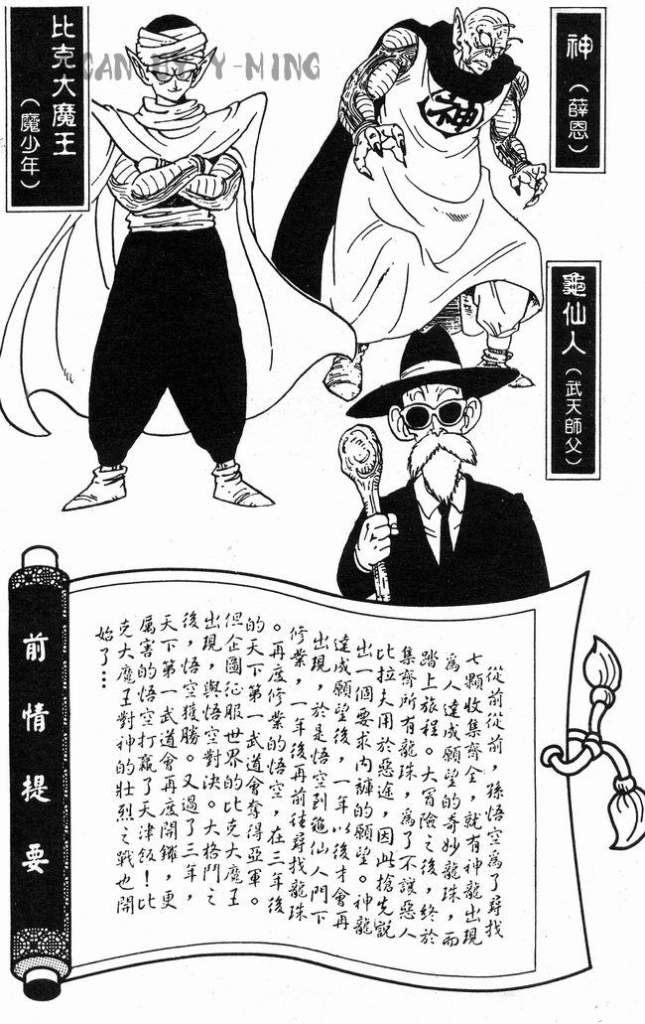 神
（薛恩）
神
CAN Y-MING
比克大魔王
（魔少年）
龜仙人
（武天師父）
前情提要
從前從前，孫悟空為了尋找
七顆收集齊全，就有神龍出現
為人達成願望的奇妙龍珠，而
踏上旅程。大冒險之後，終於
集齊所有龍珠，為了不讓惡人
比拉夫用於惡途，因此搶先說
出一個要求內褲的願望。神龍
達成願望後，一年以後才會再
出現，於是悟空到龜仙人門下
修業，一年後再前往尋找龍珠
。再度修業的悟空，在三年後
的天下第一武道會奪得亞軍。
但企圖征服世界的比克大魔王
出現，與悟空對決。大格鬥之
後，悟空獲勝。又過了三年，
天下第一武道會再度開鑼，更
厲害的悟空打贏了天津飯！比
克大魔王對神的壯烈之戰也開
始了…